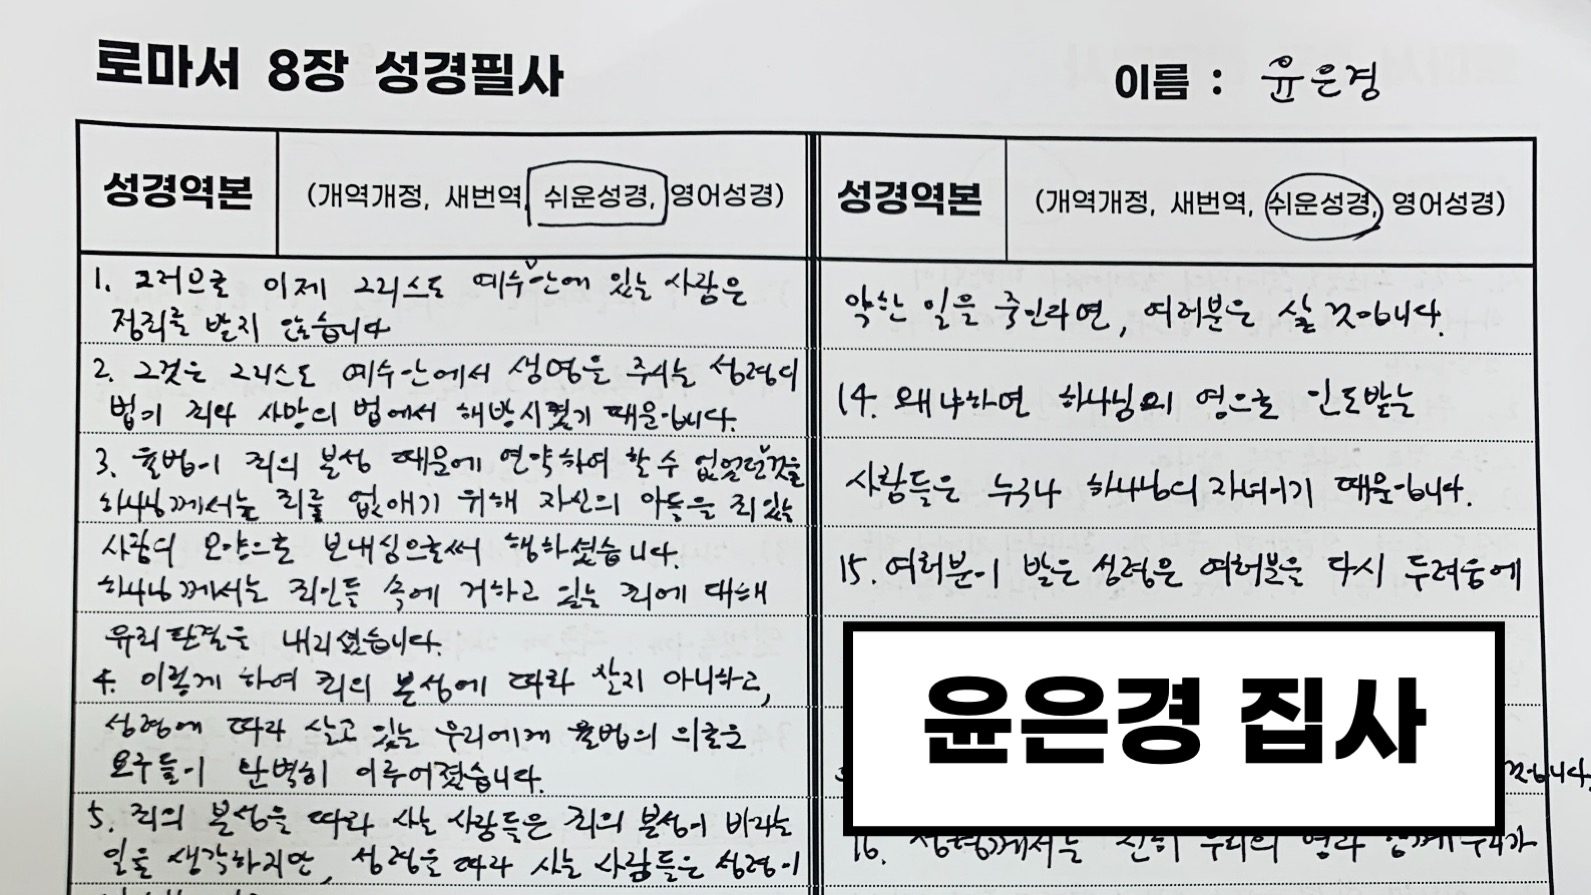 로마서 8장 성경필사
이름 : 윤은경
성경역본 (개역개정, 새번역, 쉬운성경, 영어성경)
1. 그러므로 이제 그리스도 예수안에 있는 사람은
정죄를 받지 않습니다
2. 그것은 그리스도 예수안에서 생명을 주시는 성령의
법이 죄와 사망의 법에서 해방시켰기 때문입니다.
3. 율법이 죄의 본성 때문에 연약하여 할 수 없었던것을
하나님께서는 죄를 없애기 위해 자신의 아들을 죄있는
사람의 모양으로 보내심으로써 행하셨습니다.
하나님께서는 죄인들 속에 거하고 있는 죄에 대해
유죄판결을 내리셨습니다.
4. 이렇게 하여 죄의 본성에 따라 살지 아니하고,
성령에 따라 살고 있는 우리에게 율법의 의로운
요구들이 완벽히 이루어졌습니다.
5. 죄의 본성을 따라 사는 사람들은 죄의 본성이 바라는
일을 생각하지만, 성령을 따라 사는 사람들은 성령이
성경역본 (개역개정, 새번역, 쉬운성경, 영어성경)
악한 일을 죽인다면, 여러분은 살 것입니다.
14. 왜냐하면 하나님의 영으로 인도받는
사람들은 누구나 하나님의 자녀이기 때문입니다.
15. 여러분이 받은 성령은 여러분을 다시 두려움에
윤은경 집사
것입니다.
16. 성령께서는 친히 우리의 영과 함께 우리가